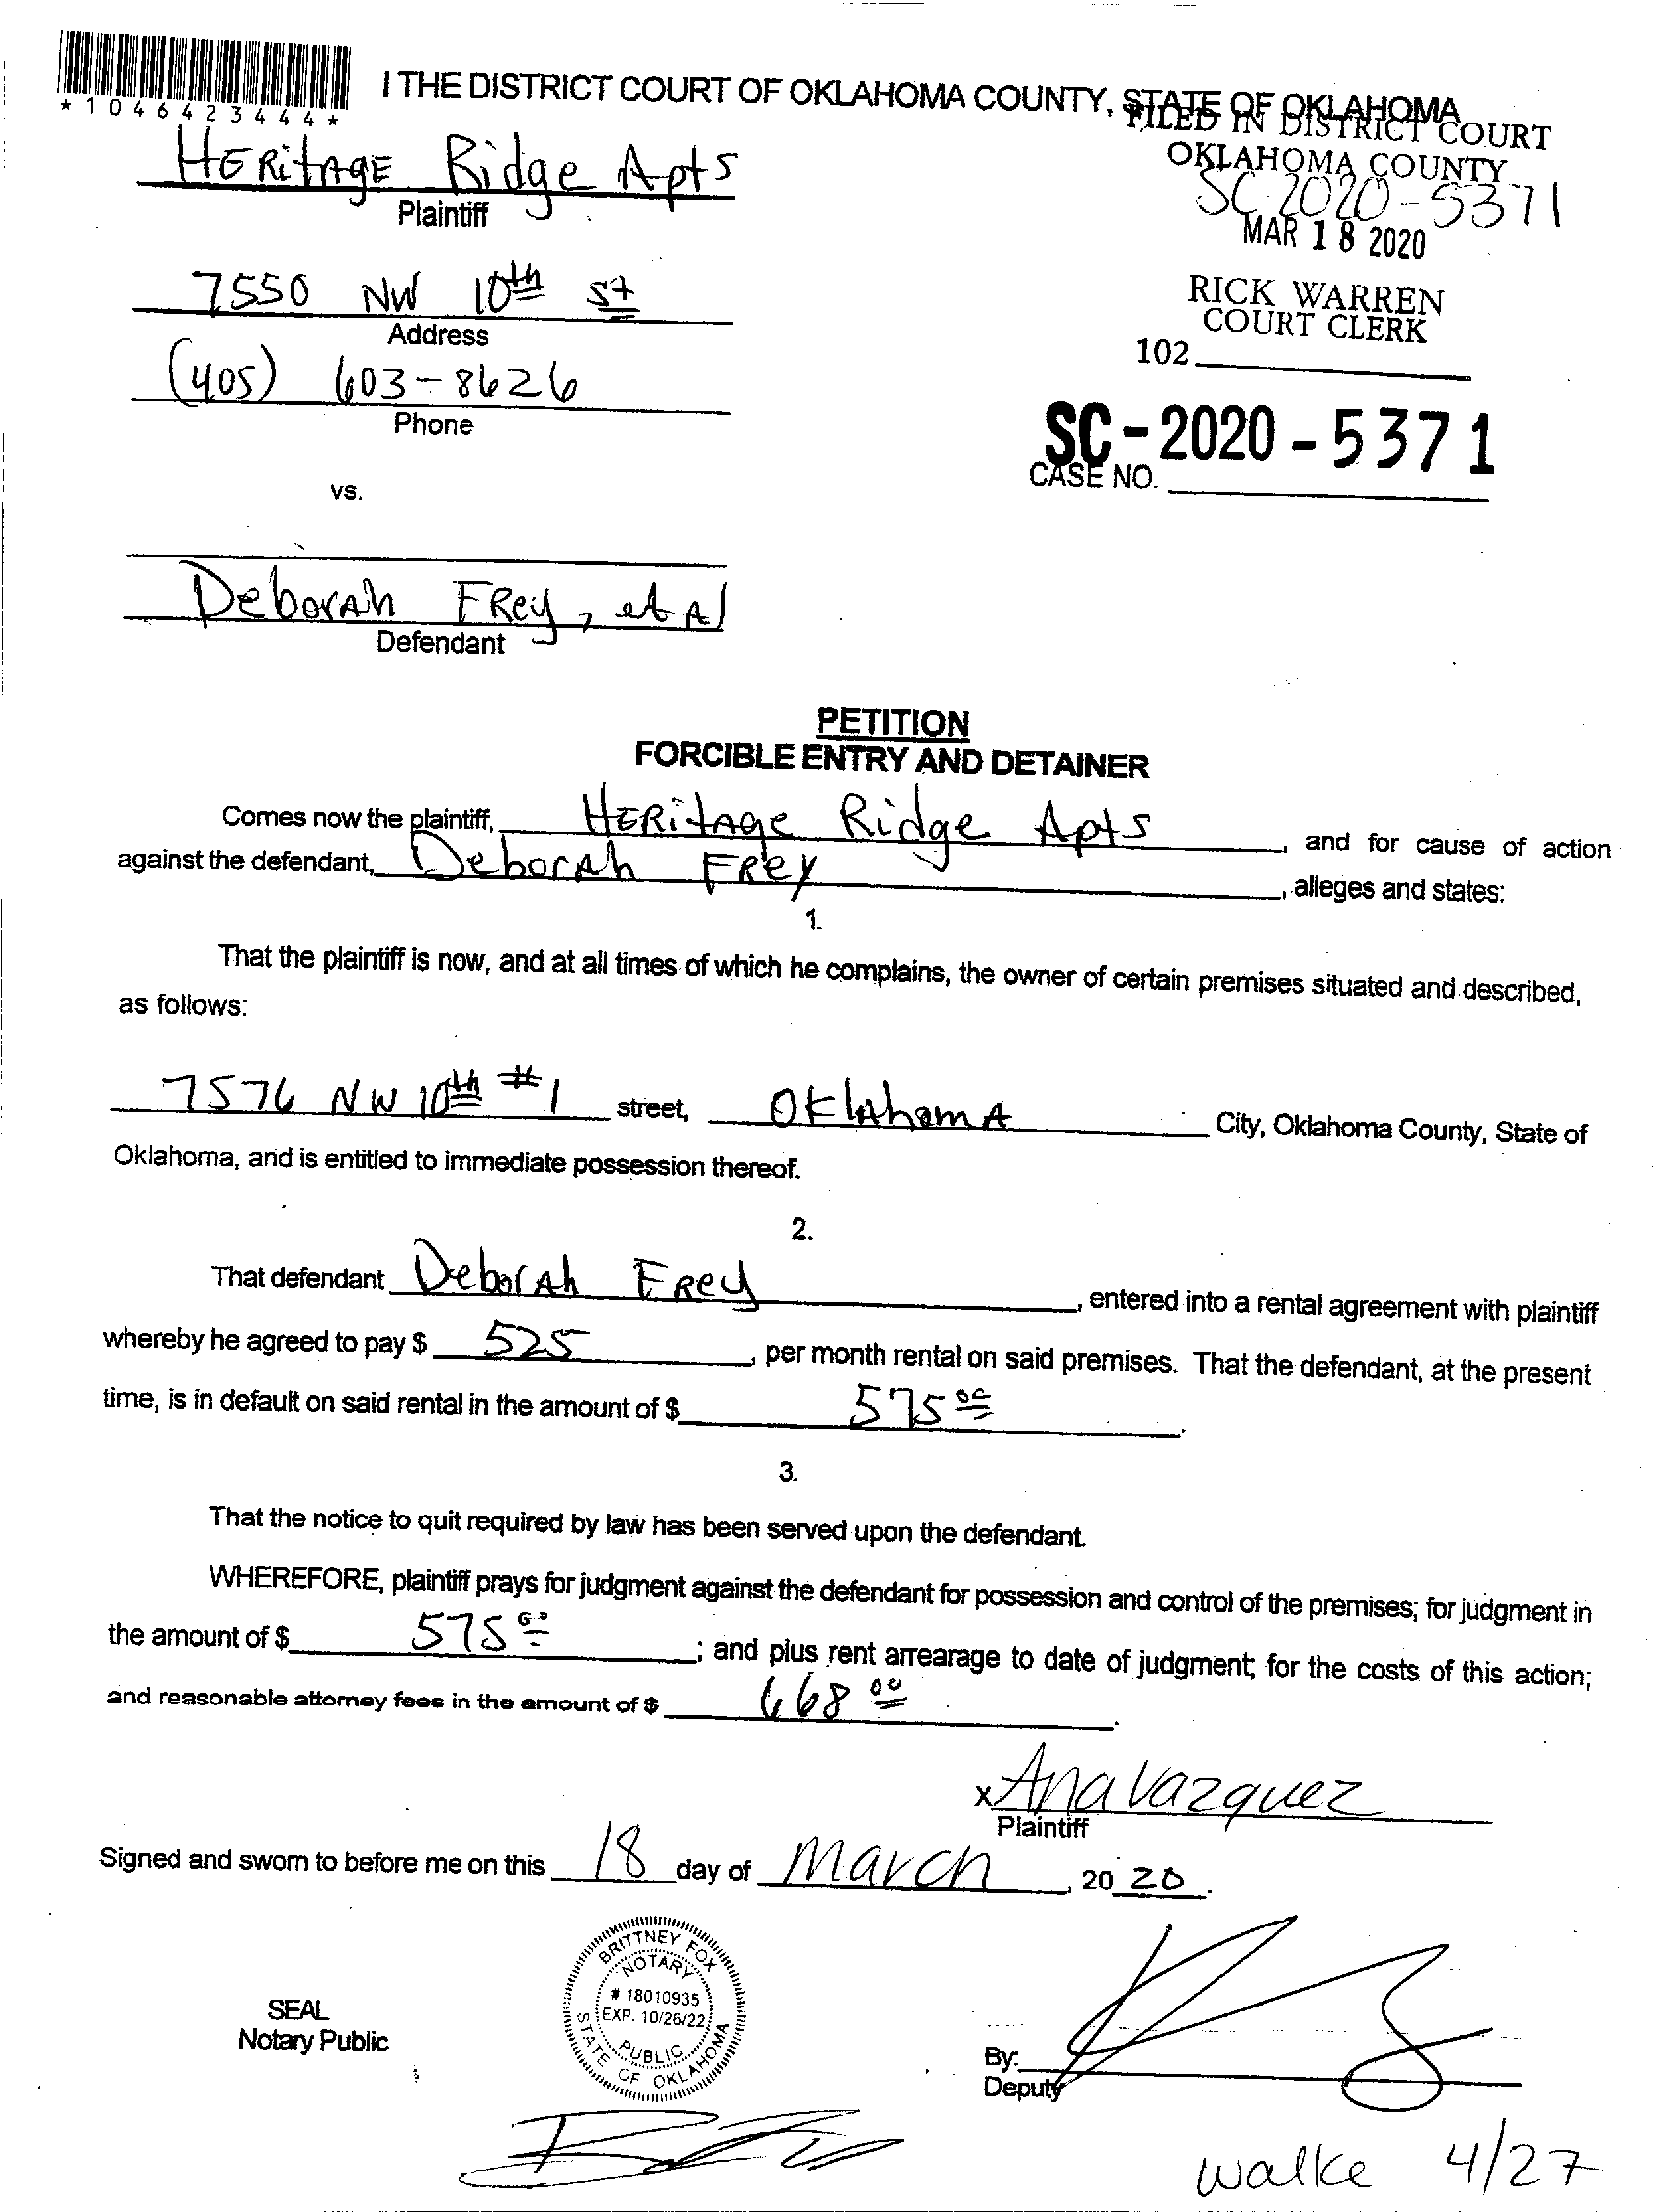 *1046423444*
I THE DISTRICT COURT OF OKLAHOMA COUNTY, STATE OF OKLAHOMA
FILED IN DISTRICT COURT
OKLAHOMA COUNTY
SC 2020-5371
MAR 18 2020
RICK WARREN
COURT CLERK
102
HERitAGE Ridge Apts
Plaintiff
7550 NW 10th st
Address
(405) 603-8626
Phone
SC-2020-5371
CASE NO.
vs.
DeborAh FRey, et Al
Defendant
PETITION
FORCIBLE ENTRY AND DETAINER
Comes now the plaintiff, HERitAge Ridge Apts, and for cause of action
against the defendant, DeborAh FRey, alleges and states:
1.
That the plaintiff is now, and at all times of which he complains, the owner of certain premises situated and described,
as follows:
7576 NW 10th #1 street, OklAhomA City, Oklahoma County, State of
Oklahoma, and is entitled to immediate possession thereof.
2.
That defendant DeborAh FRey, entered into a rental agreement with plaintiff
whereby he agreed to pay $ 525, per month rental on said premises. That the defendant, at the present
time, is in default on said rental in the amount of $ 575 00.
3.
That the notice to quit required by law has been served upon the defendant.
WHEREFORE, plaintiff prays for judgment against the defendant for possession and control of the premises; for judgment in
the amount of $ 575 00; and plus rent arrearage to date of judgment; for the costs of this action;
and reasonable attorney fees in the amount of $ 668 00.
x Ana Vazquez
Plaintiff
Signed and sworn to before me on this 18 day of March, 20 20.
BRITTNEY FOX
NOTARY
# 18010935
EXP. 10/26/22
PUBLIC
STATE OF OKLAHOMA
SEAL
Notary Public
By:
Deputy
walke 4/27